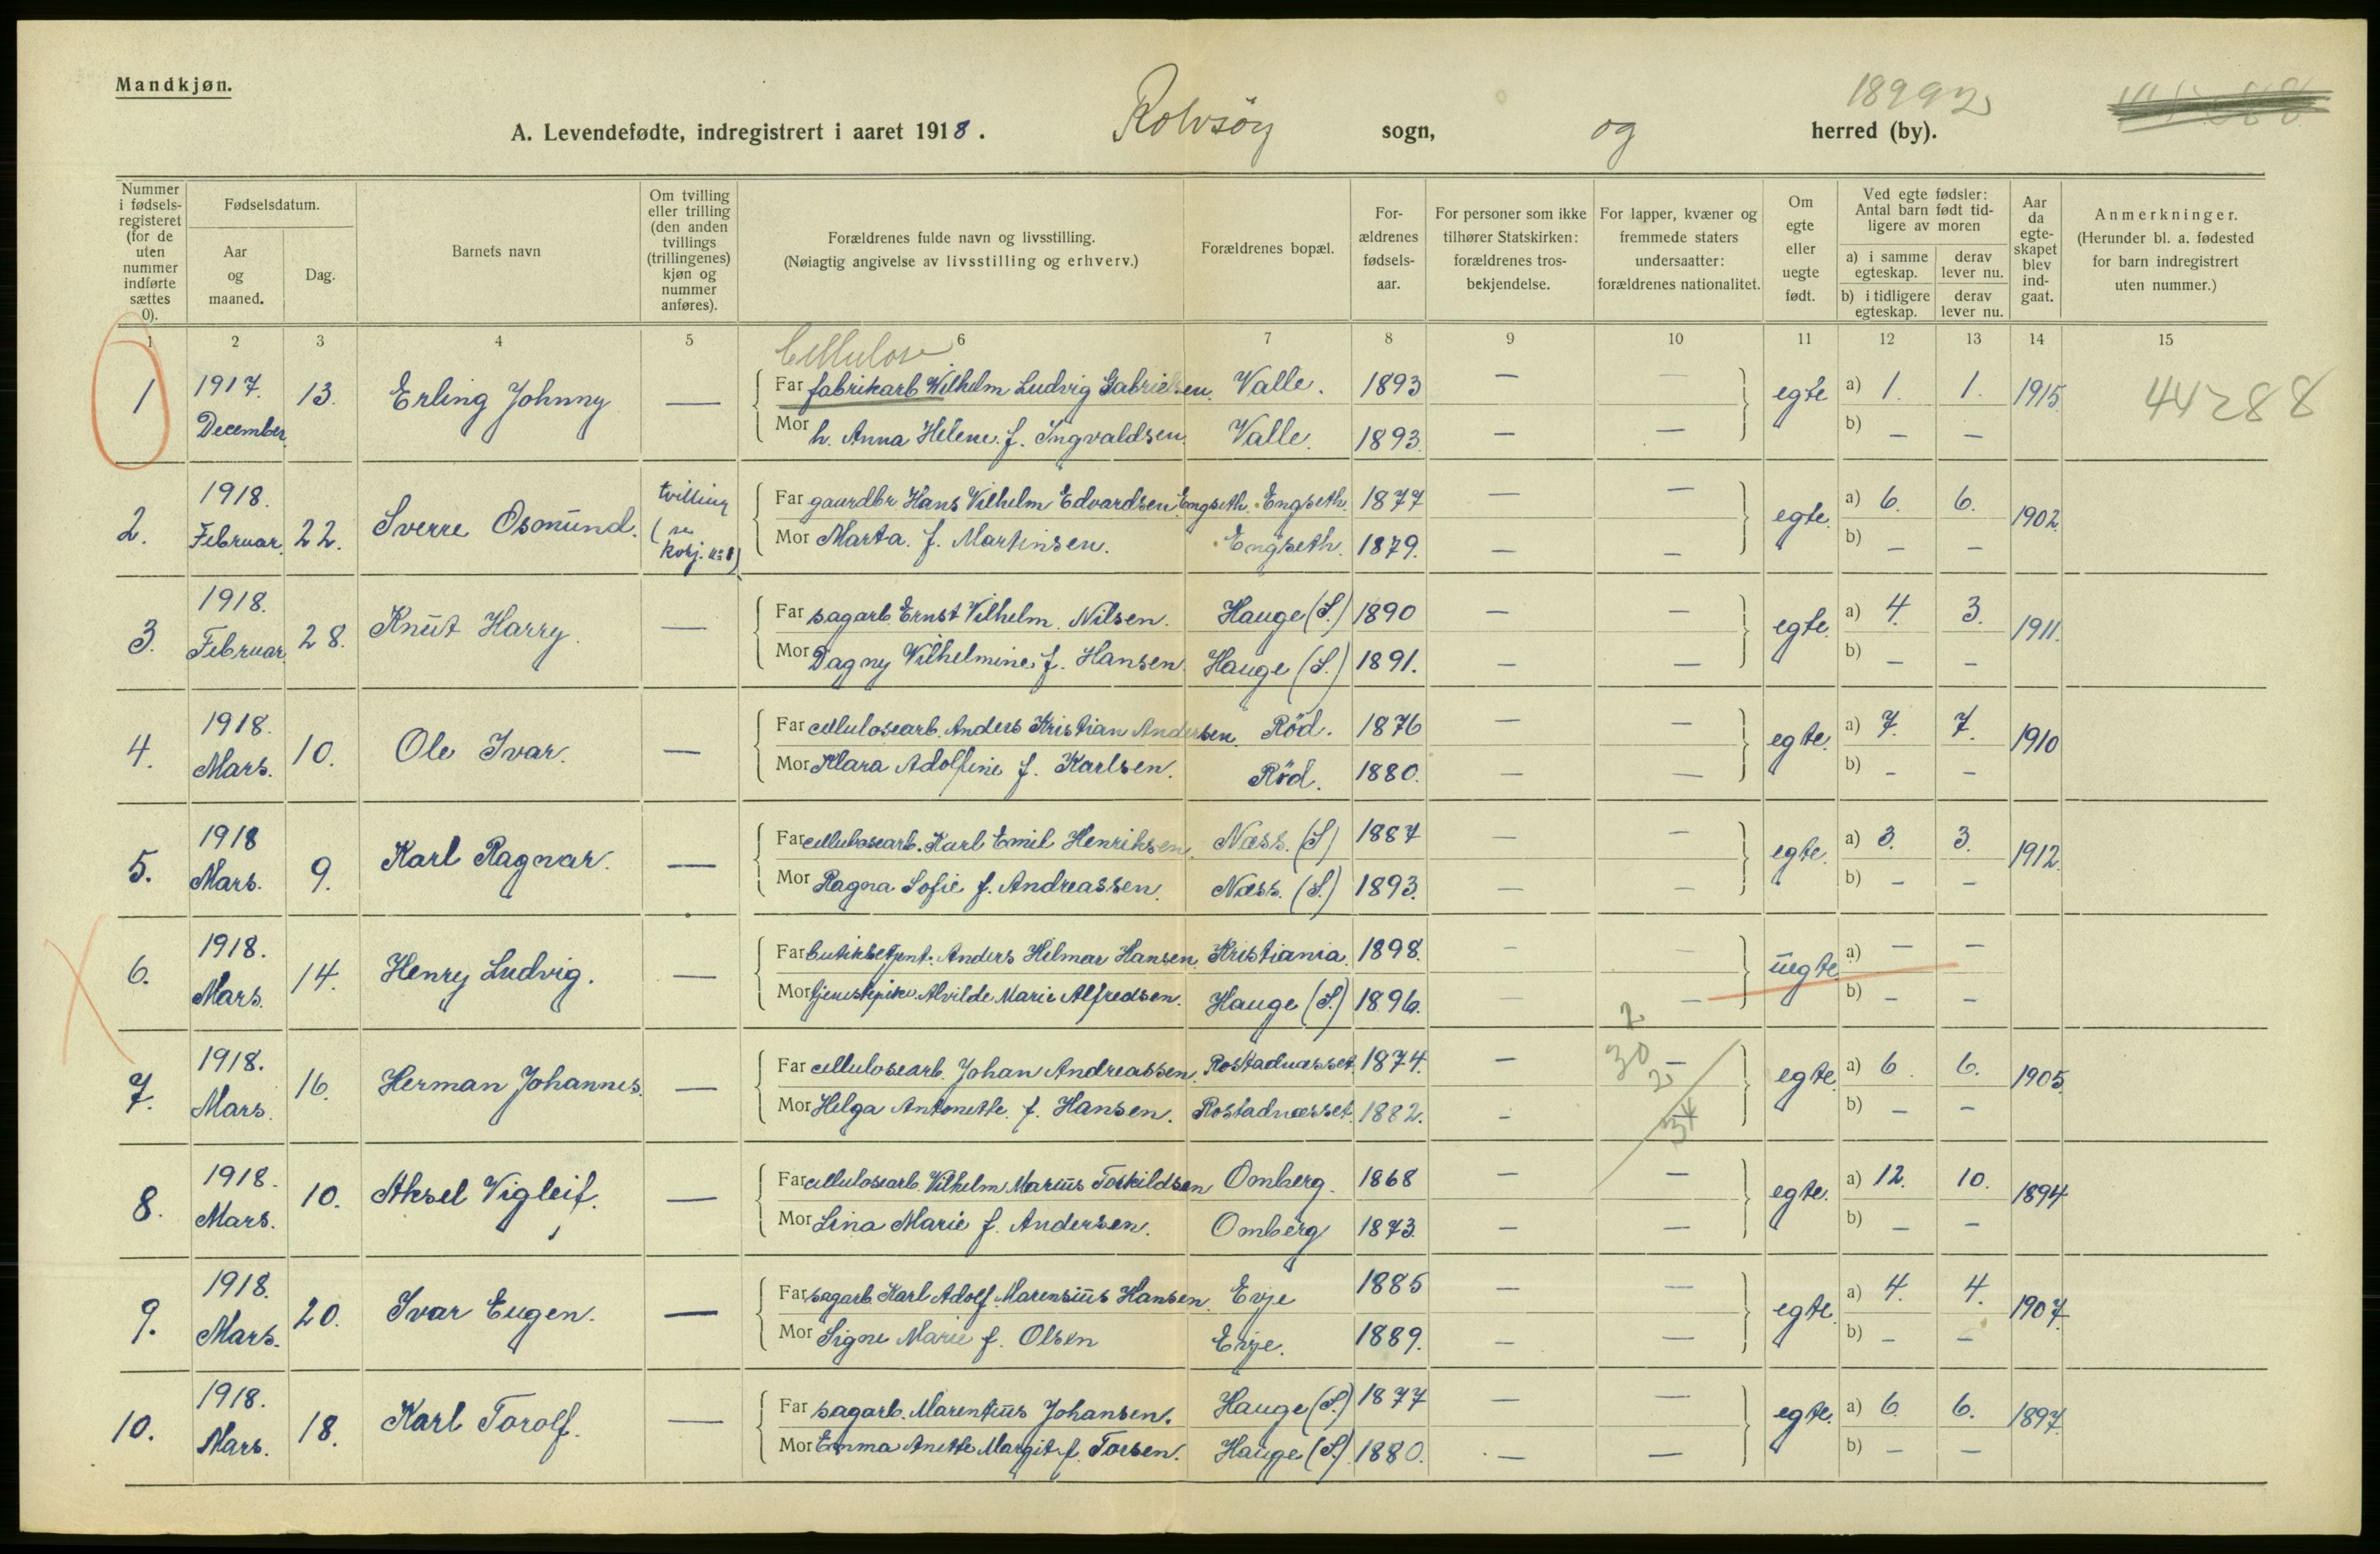 Mandkjøn.
18992
A. Levendefødte, indregistrert i aaret 1918. Rolvsøy sogn, og herred (by).
Nummer i fødselsregisteret (for de uten nummer indførte sættes 0).
Fødselsdatum.
Aar og maaned.
Dag.
Barnets navn
Om tvilling eller trilling (den anden tvillings (trillingenes) kjøn og nummer anføres).
Forældrenes fulde navn og livsstilling.
(Nøiagtig angivelse av livsstilling og erhverv.)
Forældrenes bopæl.
Forældrenes fødselsaar.
For personer som ikke tilhører Statskirken: forældrenes trosbekjendelse.
For lapper, kvæner og fremmede staters undersaatter: forældrenes nationalitet.
Om egte eller uegte født.
Ved egte fødsler: Antal barn født tidligere av moren
a) i samme egteskap. derav lever nu.
b) i tidligere egteskap. derav lever nu.
Aar da egteskapet blev indgaat.
Anmerkninger.
(Herunder bl. a. fødested for barn indregistrert uten nummer.)
1 2 3 4 5 6 7 8 9 10 11 12 13 14 15
Cellulose
1 1917. December. 13. Erling Johnny — Far fabrikarb. Wilhelm Ludvig Gabrielsen. Valle. 1893 — — egte a) 1. 1. 1915. 44288
Mor h. Anna Helene. f. Ingvaldsen. Valle. 1893. — — b) — —
2. 1918. Februar. 22. Sverre Osmund. tvilling (se kvkj. n=8) Far gaardbr Hans Vilhelm Edvardsen Engseth. Engseth. 1877 — — egte. a) 6. 6. 1902.
Mor Marta. f. Martinsen. Engseth. 1879. — — b) — —
3. 1918. Februar. 28. Knut Harry. — Far sagarb. Ernst Vilhelm. Nilsen. Hauge (S.) 1890 — — egte. a) 4. 3. 1911.
Mor Dagny Vilhelmine f. Hansen. Hauge (S.) 1891. — — b) — —
4. 1918. Mars. 10. Ole Ivar. — Far cellulosearb. Anders Kristian Andersen. Röd. 1876 — — egte. a) 7. 7. 1910
Mor Klara Adolfine f. Karlsen. Röd. 1880. — — b) — —
5. 1918 Mars. 9. Karl Ragnar. — Far cellulosearb. Karl Emil Henriksen. Næss. (S) 1887 — — egte. a) 3. 3. 1912.
Mor Ragna Sofie f. Andreassen. Næss. (S.) 1893. — — b) — —
6. 1918. Mars. 14. Henry Ludvig. — Far butiksbetjent. Anders Hilmar Hansen. Kristiania. 1898. — — uegte a) — —
Mor tjenestepike Alvilde Marie Alfredsen. Hauge (S.) 1896. — — b) — —
7. 1918. Mars. 16. Herman Johannes. — Far cellulosearb. Johan Andreassen. Rostadnæsset. 1874. — 2 30 2 34 — egte. a) 6. 6. 1905.
Mor Helga Antonette. f. Hansen. Rostadnæsset. 1882. — b) — —
8. 1918. Mars. 10. Aksel Vigleif. — Far cellulosearb. Vilhelm Marius Torkildsen Omberg. 1868 — — egte. a) 12. 10. 1894
Mor Lina Marie f. Andersen. Omberg 1873. — — b) — —
9. 1918. Mars. 20. Ivar Eugen. — Far sagarb. Karl Adolf Marensius Hansen. Evje 1885 — — egte. a) 4. 4. 1907.
Mor Signe Marie f. Olsen Evje. 1889. — — b) — —
10. 1918. Mars. 18. Karl Torolf. — Far sagarb. Marentius Johansen. Hauge (S.) 1877 — — egte. a) 6. 6. 1897.
Mor Emma Anette Margit f. Torsen. Hauge (S.) 1880. — — b) — —